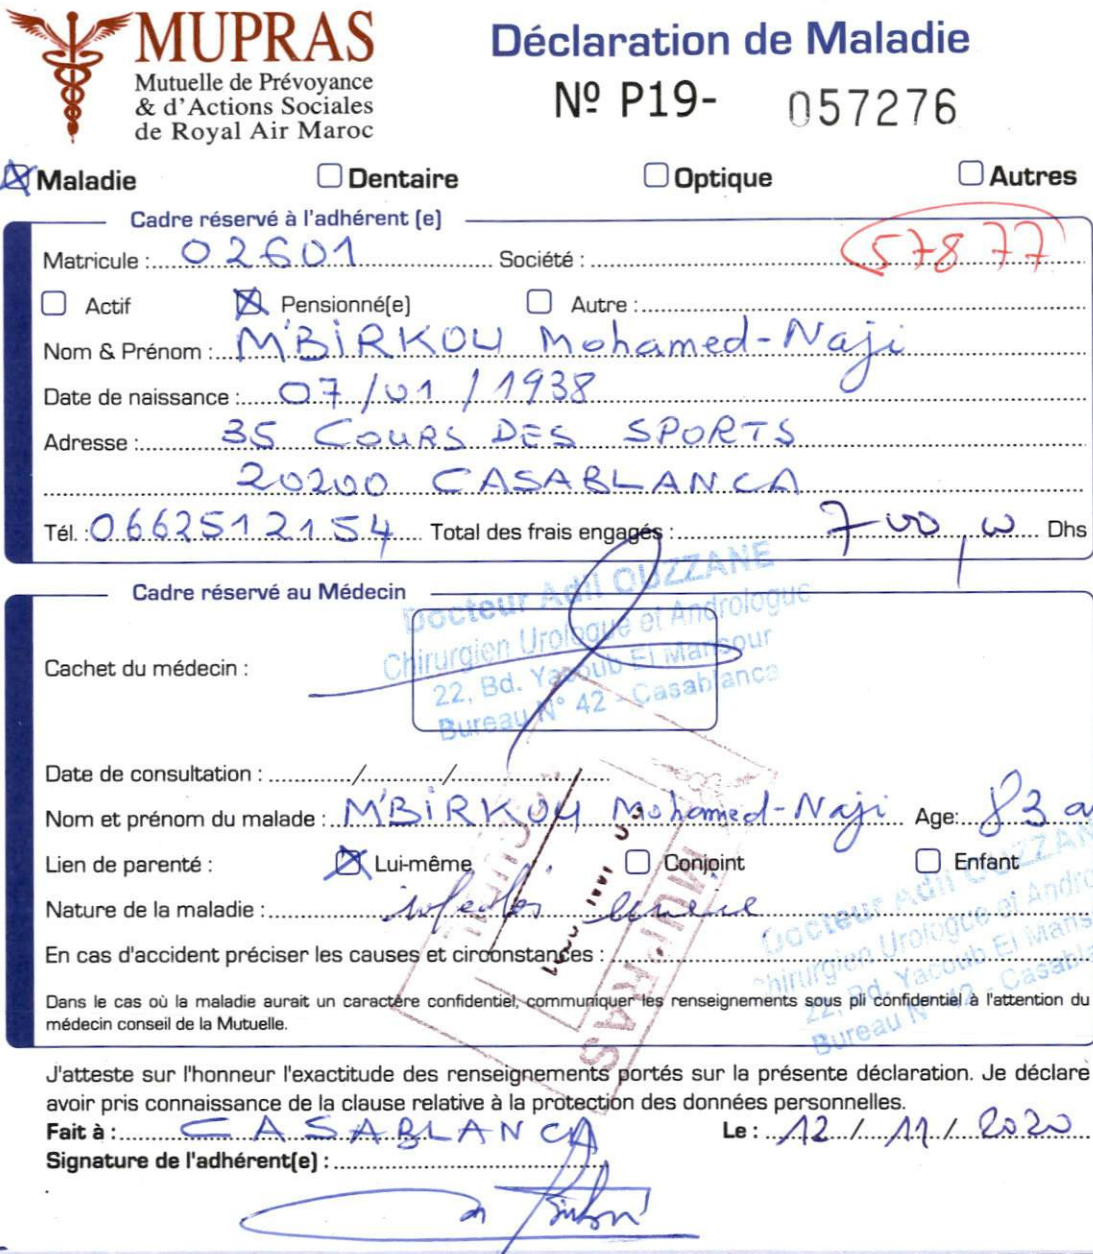 MUPRAS
Mutuelle de Prévoyance
& d'Actions Sociales
de Royal Air Maroc
Déclaration de Maladie
Nº P19- 057276
Maladie Dentaire Optique Autres
Cadre réservé à l'adhérent (e)
Matricule : 02601 Société : 57877
Actif Pensionné(e) Autre :
Nom & Prénom : M'BIRKOU Mohamed-Naji
Date de naissance : 07/01/1938
Adresse : 35 COURS DES SPORTS
20200 CASABLANCA
Tél. : 0662512154 Total des frais engagés : 700,00 Dhs
Cadre réservé au Médecin
Docteur Adil OUZZANE
Chirurgien Urologue et Andrologue
22, Bd. Yacoub El Mansour
Bureau N° 42 - Casablanca
Cachet du médecin :
Date de consultation : ........../........../..........
Nom et prénom du malade : M'BIRKOU Mohamed-Naji Age: 83 a
Lien de parenté : Lui-même Conjoint Enfant
Nature de la maladie :
En cas d'accident préciser les causes et circonstances :
Dans le cas où la maladie aurait un caractère confidentiel, communiquer les renseignements sous pli confidentiel à l'attention du
médecin conseil de la Mutuelle.
Docteur Adil OUZZAN
Chirurgien Urologue et Andro
22, Bd. Yacoub El Manso
Bureau N° 42 - Casabla
MUPRAS
J'atteste sur l'honneur l'exactitude des renseignements portés sur la présente déclaration. Je déclare
avoir pris connaissance de la clause relative à la protection des données personnelles.
Fait à : CASABLANCA Le : 12/11/2020
Signature de l'adhérent(e) :